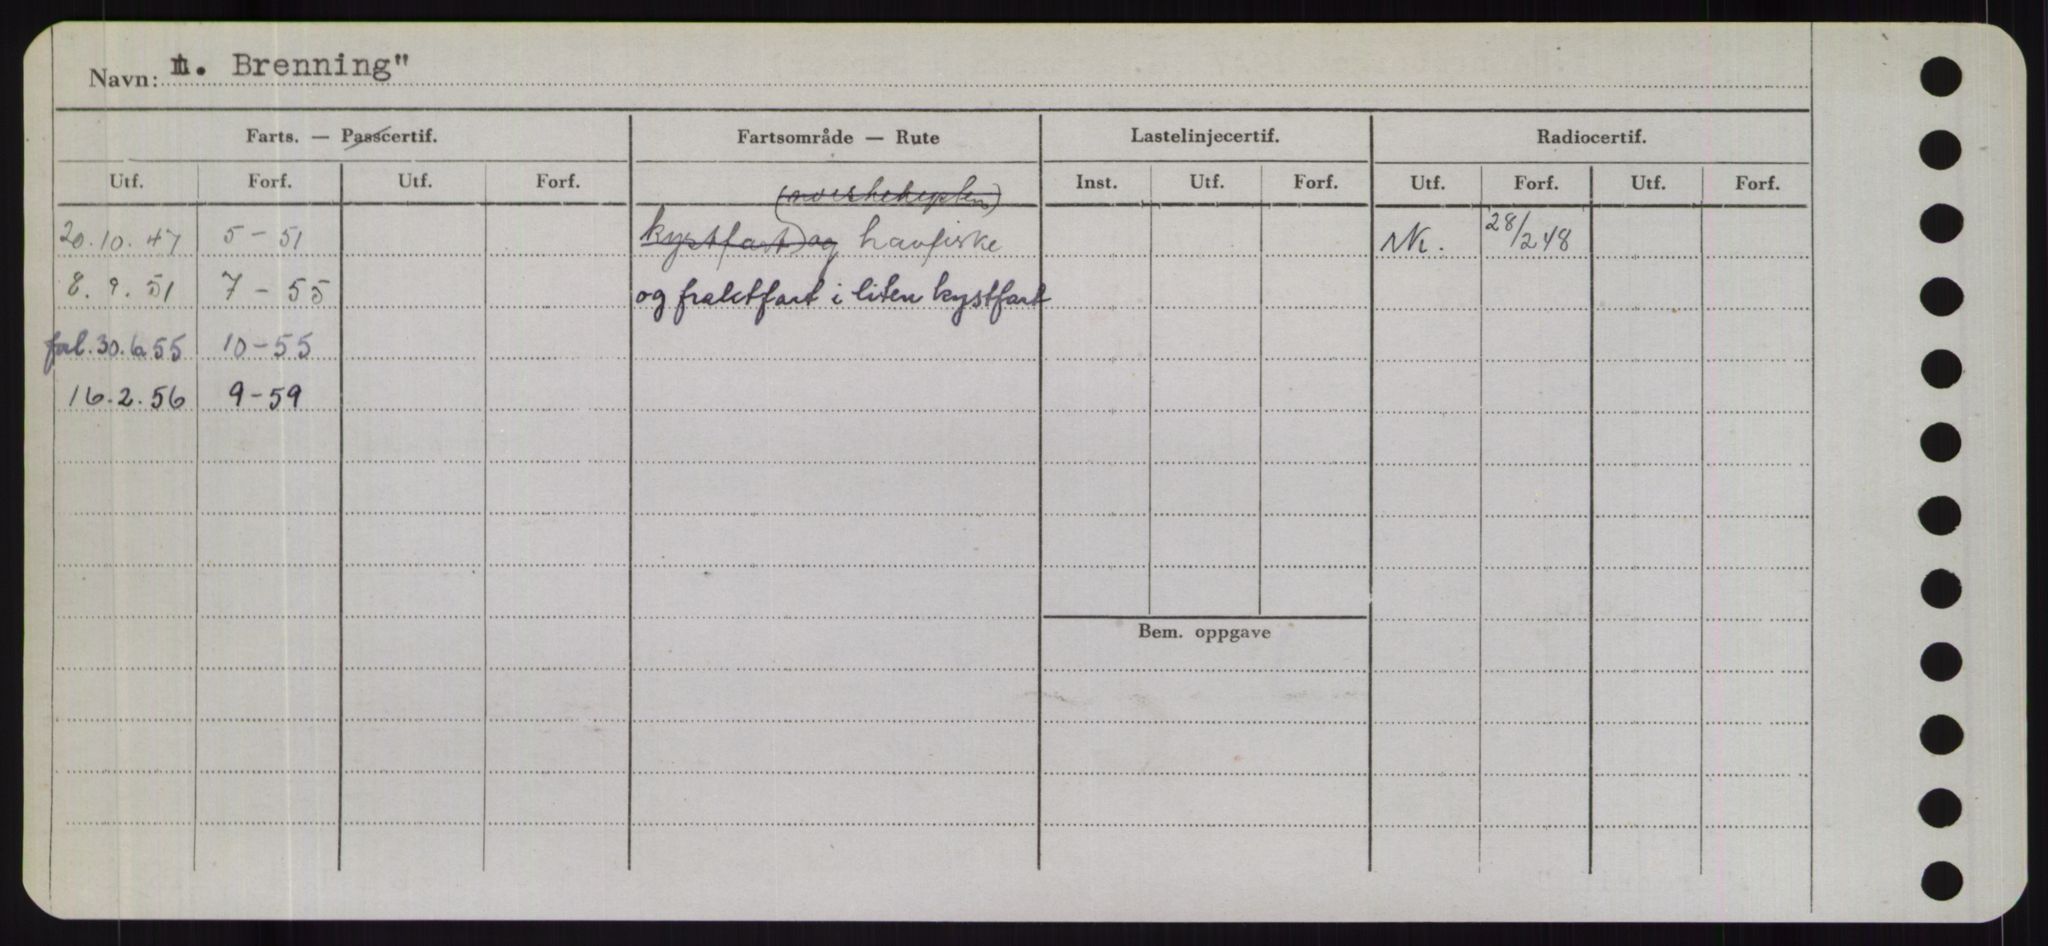 Navn: M. Brenning"
Farts. — Passcertif. Fartsområde — Rute Lastelinjecertif. Radiocertif.
Utf. Forf. Utf. Forf. Inst. Utf. Forf. Utf. Forf. Utf. Forf.
20.10.47 5-51 kystfart) og havfiske NK. 28/2 48
8.9.51 7-55 og fraktfart i liten kystfart
forl. 30.6.55 10-55
16.2.56 9-59
Bem. oppgave